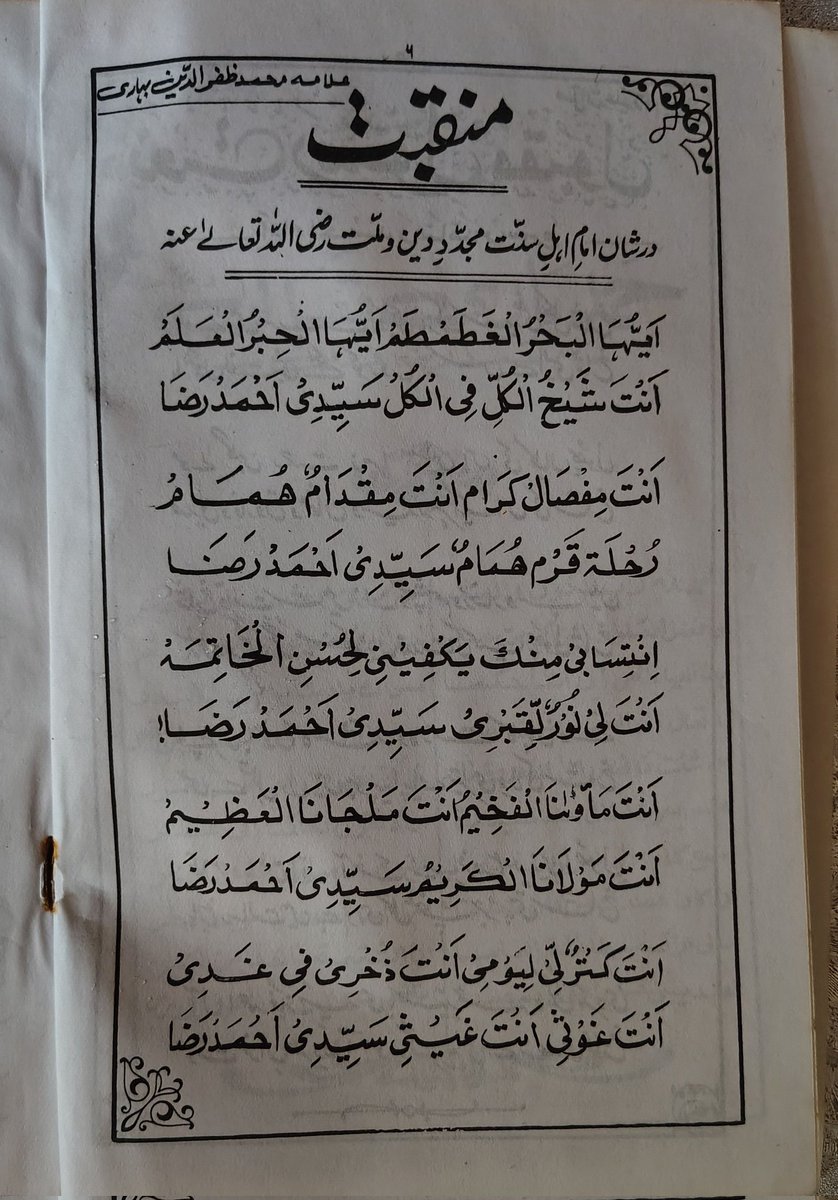 ۶
علامہ محمد ظفر الدین بہاری
منقبت
در شان امامِ اہلِ سنّت مجدّدِ دین و ملّت رضی اللہ تعالےٰ عنہ
اَيُّهَا الْبَحْرُ الْغَطَمْطَمْ اَيُّهَا الْحِبْرُ الْعَلَمْ
اَنْتَ شَيْخُ الْكُلِّ فِي الْكُلْ سَيِّدِيْ اَحْمَدْ رَضَا
اَنْتَ مِفْصَالْ كَرَام اَنْتَ مِقْدَامٌ هُمَامْ
رُحْلَة قَرْم هُمَامٌ سَيِّدِيْ اَحْمَدْ رَضَا
اِنْتِسَابِيْ مِنْكَ يَكْفِيْنِيْ لِحُسْنِ الْخَاتِمَهْ
اَنْتَ لِيْ نُوْرٌ لِّقَبْرِيْ سَيِّدِيْ اَحْمَدْ رَضَا!
اَنْتَ مَاْوٰنَا الْفَخِيْمُ اَنْتَ مَلْجَانَا الْعَظِيْمْ
اَنْتَ مَوْلَانَا الْكَرِيْمْ سَيِّدِيْ اَحْمَدْ رَضَا
اَنْتَ كَنْزٌ لِّيْ لِيَوْمِيْ اَنْتَ ذُخْرِيْ فِيْ غَدِيْ
اَنْتَ غَوْثِيْ اَنْتَ غَيْثِيْ سَيِّدِيْ اَحْمَدْ رَضَا